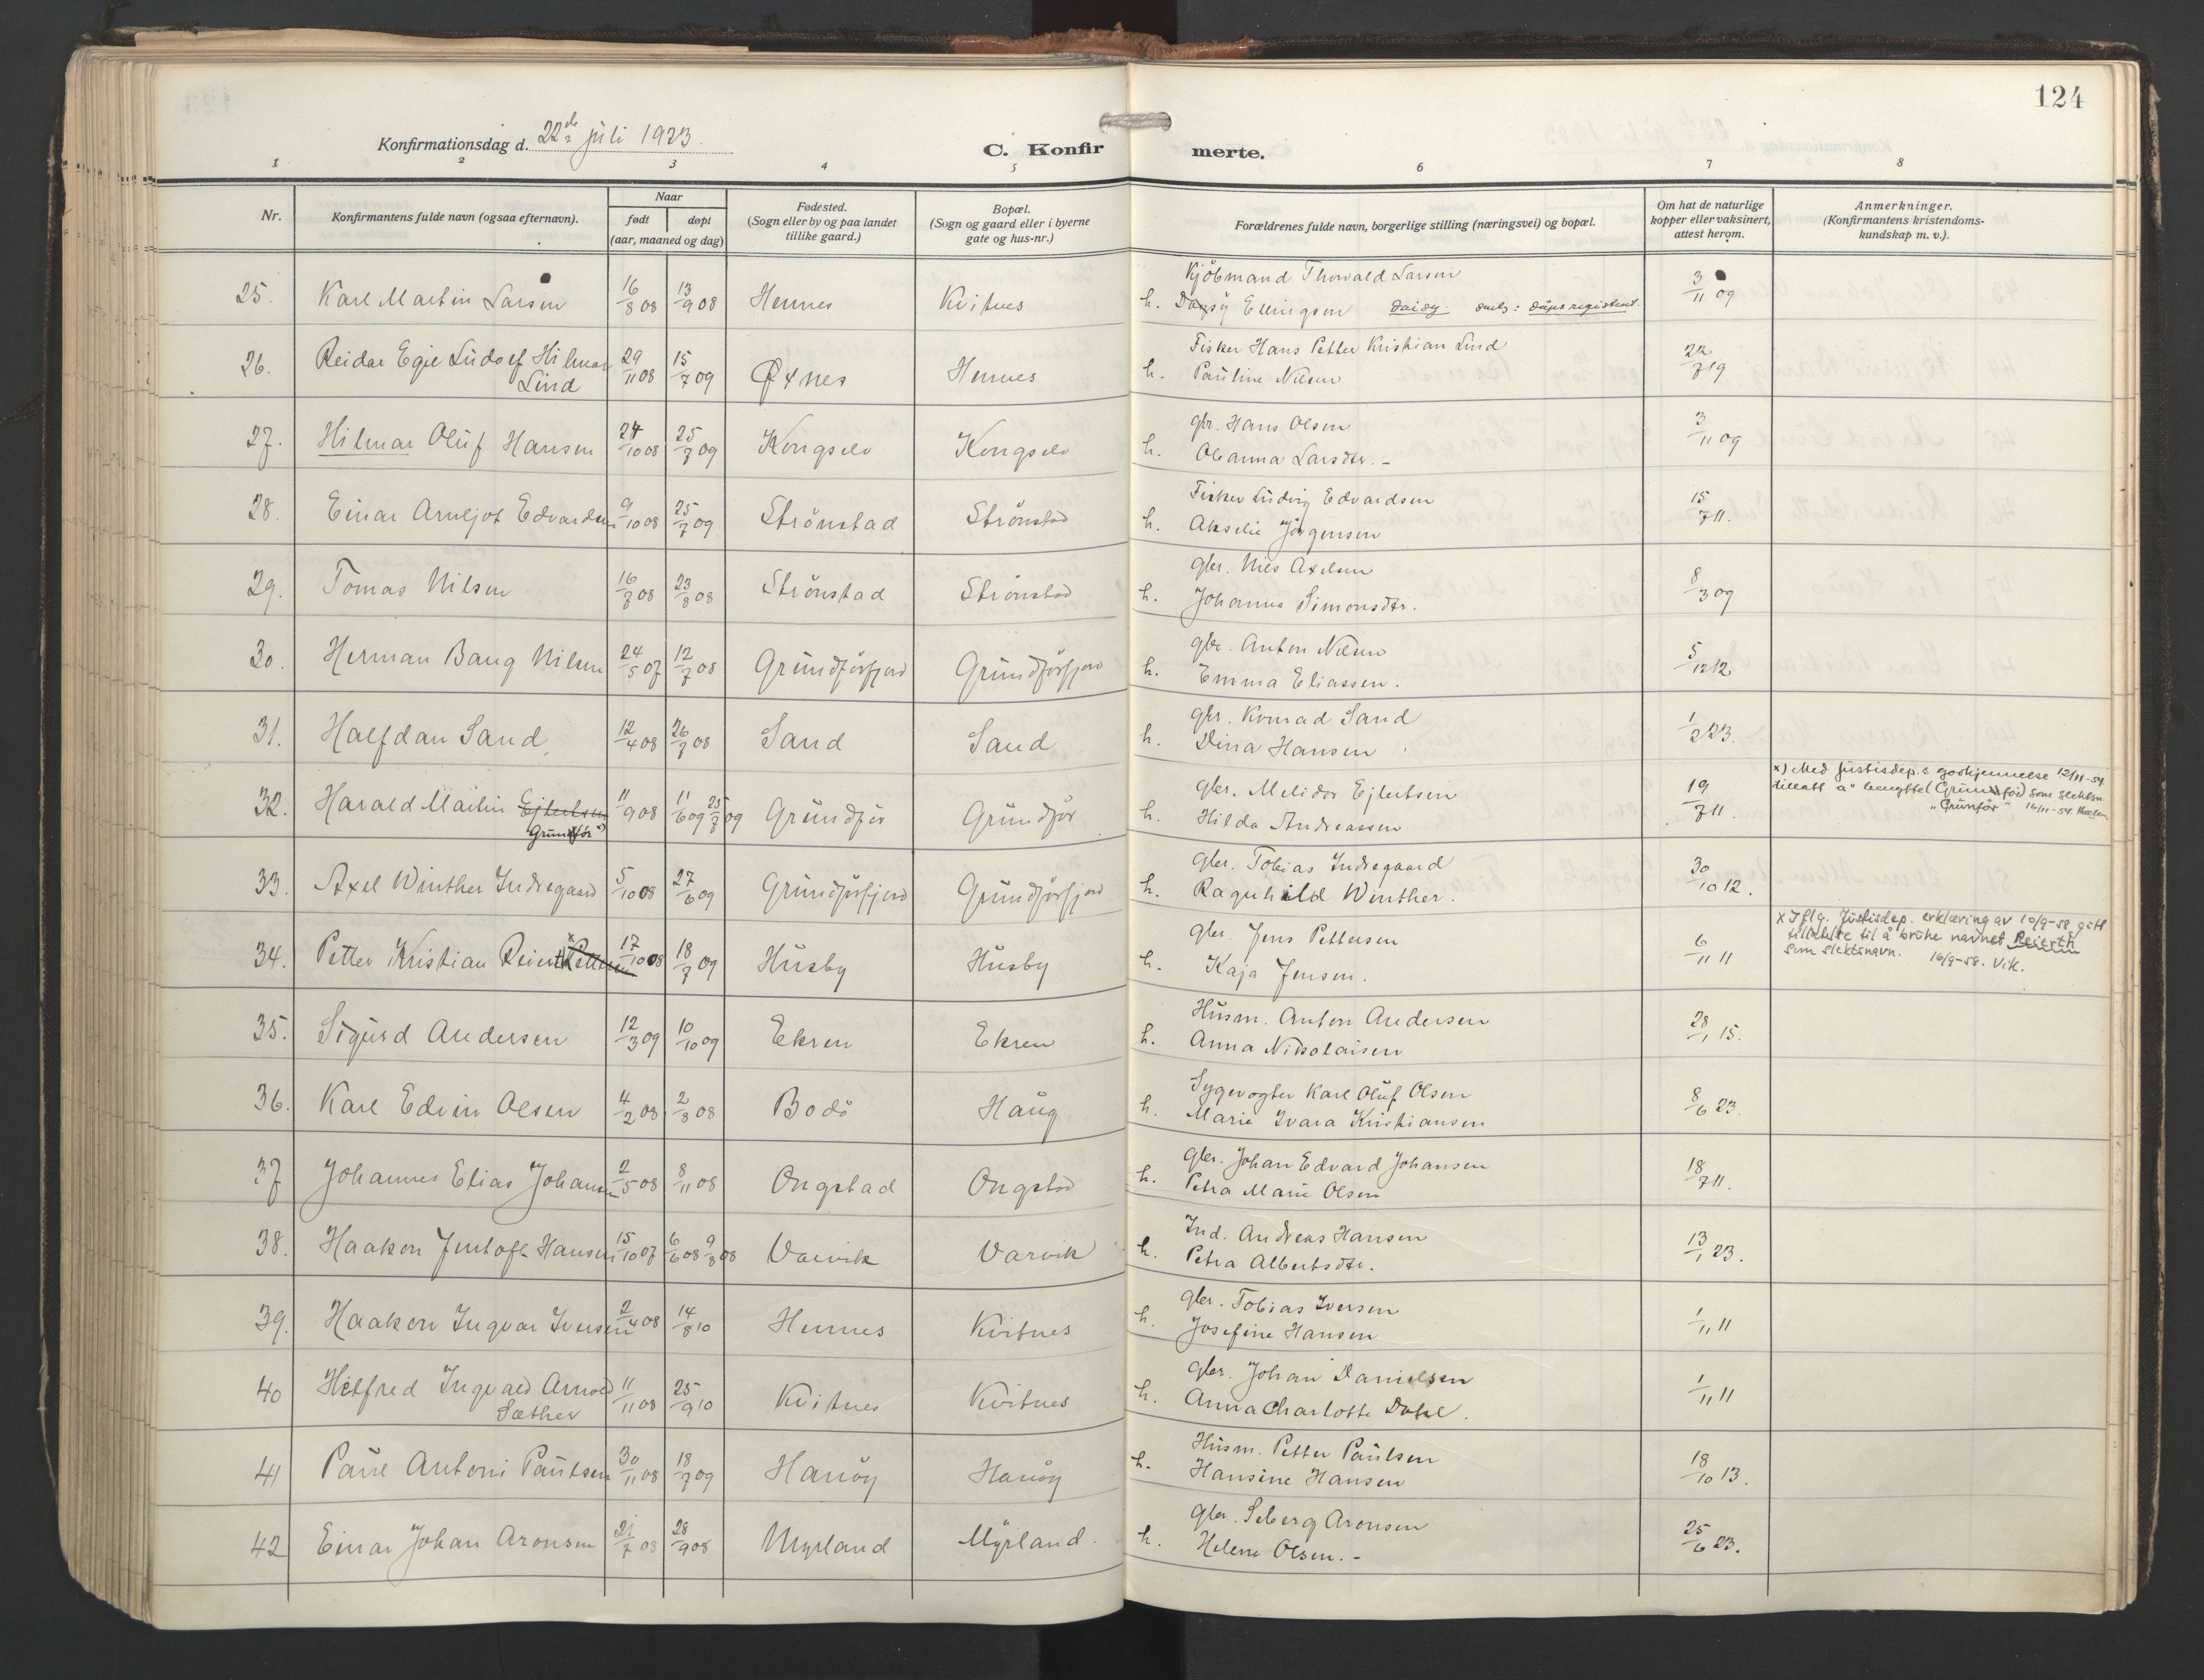 124
Konfirmationsdag d. 22de juli 1923.
C. Konfirmerte.
1 2 3 4 5 6 7 8
Nr.
Konfirmantens fulde navn (ogsaa efternavn).
Naar
født døpt
(aar, maaned og dag)
Fødested.
(Sogn eller by og paa landet
tillike gaard.)
Bopæl.
(Sogn og gaard eller i byerne
gate og hus-nr.)
Forældrenes fulde navn, borgerlige stilling (næringsvei) og bopæl.
Om hat de naturlige
kopper eller vaksinert,
attest herom.
Anmerkninger.
(Konfirmantens kristendoms-
kundskap m. v.).
25. Karl Martin Larsen 16/8 08 13/9 08 Hennes Kvitnes Kjöbmand Thorvald Larsen 3/11 09
h. Daysy Ellingsen Daisy. smlg: dåpsregisteret.
26. Reidar Egil Ludolf Hilmar 29/11 08 15/7 09 Øxnes Hennes Fisker Hans Petter Kristian Lind 22/7 19
Lind h. Pauline Nilsen
27. Hilmar Oluf Hansen 24/10 08 25/7 09 Kongselv Kongselv gbr. Hans Olsen 3/11 09
h. Oleanna Larsdtr. -
28. Einar Arnljot Edvardsen 9/10 08 25/7 09 Strönstad Strönstad Fisker Ludvig Edvardsen 15/7 11.
h. Akselie Jörgensen
29. Tomas Nilsen 16/7 08 23/8 08 Strönstad Strönstad gbr. Nils Axelsen 8/3 09
h. Johanna Simonsdtr.
30. Herman Baug Nilsen 24/5 07 12/7 08 Grundförfjord Grundförfjord gbr. Anton Nilsen 5/12 12
h. Emma Eliassen.
31. Halfdan Sand 12/4 08 26/7 08 Sand Sand gbr. Konrad Sand 1/2 23.
h. Dina Hansen
32. Harald Martin Ejlertsen 11/9 08 11/6 09 25/7 09 Grundför Grundför gbr. Melidor Ejlertsen 19/7 11.
Grunför x) h. Hilda Andreassen
x) Med Justisdep.s godkjennelse 12/11-54
tillatt å benytte (Grunför) som slektsn.
"Grunför" 16/11-54.
33. Axel Winther Indregaard 5/10 08 27/6 09 Grundförfjord Grundförfjord gbr. Tobias Indregaard 30/10 12.
h. Ragnhild Winther.
34. Petter Kristian Reierth x Pettersen 17/10 08 18/7 09 Husby Husby gbr. Jens Pettersen 6/11 11
h. Kaja Jensen.
x Iflg. Justisdep. erklæring av 10/9-58 gitt
tillatelse til å bruke navnet Reierth
som slektsnavn. 16/9-58. Vik.
35. Sigurd Andersen 12/3 09 10/10 09 Ekren Ekren Husm. Anton Andersen 28/1 15.
h. Anna Nikolaisen
36. Karl Edvin Olsen 4/2 08 2/8 08 Bodö Haug Sygevogter Karl Oluf Olsen 8/6 23.
h. Marie Ivara Kristiansen
37 Johannes Elias Johansen 2/5 08 8/11 08 Ongstad Ongstad gbr. Johan Edvard Johansen 18/7 11.
h. Petra Marie Olsen
38. Haakon Jentoft Hansen 15/10 07 6/6 08 9/8 08 Varvik Varvik Ind. Andreas Hansen 13/1 23.
h. Petra Albertsdtr.
39. Haakon Ingvar Iversen 2/4 08 14/8 10 Hennes Kvitnes gbr. Tobias Iversen 1/11 11
h. Josefine Hansen
40 Hilfred Ingvald Arnold 11/11 08 25/9 10 Kvitnes Kvitnes gbr. Johan Danielsen 1/11 11
Sæther h. Anna Charlotte Dahl.
41 Paul Antoni Paulsen 30/11 08 18/7 09 Hanöy Hanöy Husm. Petter Paulsen 18/10 13.
h. Hansine Hansen
42 Einar Johan Aronsen 21/7 08 28/9 08 Myrland Myrland. gbr. Seberg Aronsen 25/6 23.
h. Helene Olsen. -